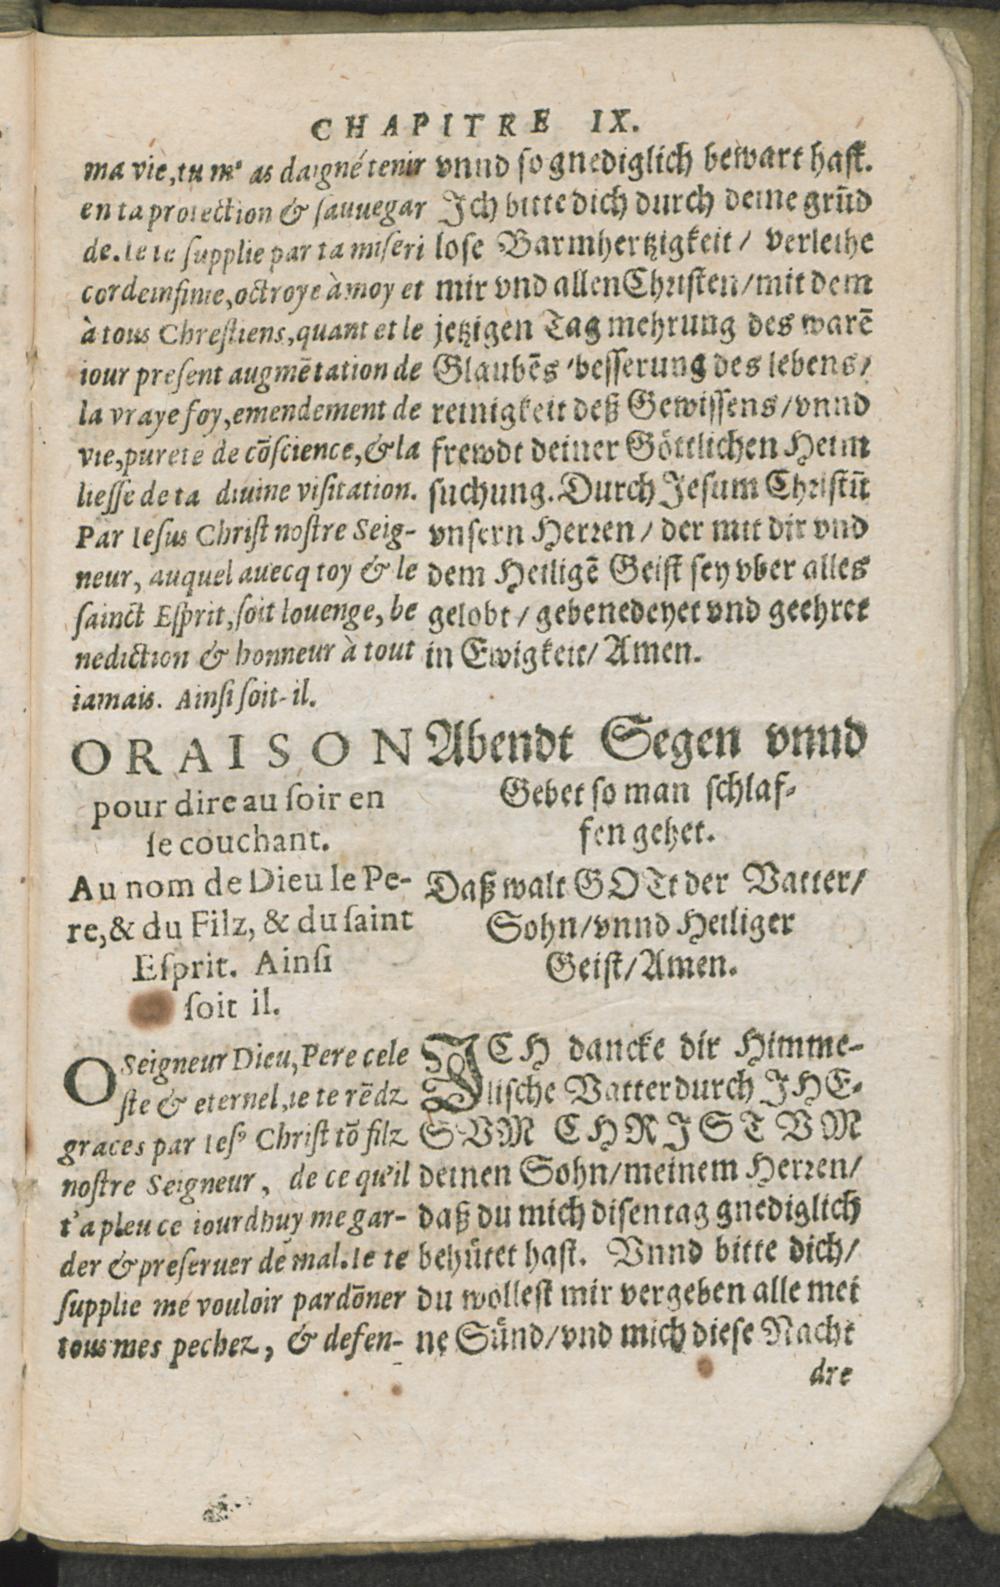 CHAPITRE IX.
ma vie, tu m' as daigné tenir
en ta protection & sauuegar
de. Ie te supplie par ta miseri
corde infinie, octroye à moy et
à tous Chrestiens, quant et le
iour present augmētation de
la vraye foy, emendement de
vie, purete de cōscience, & la
liesse de ta diuine visitation.
Par Iesus Christ nostre Seig-
neur, auquel auecq toy & le
sainct Esprit, soit louenge, be
nediction & honneur à tout
iamais. Ainsi soit-il.
ORAISON
pour dire au soir en
se couchant.
Au nom de Dieu le Pe-
re, & du Filz, & du saint
Esprit. Ainsi
soit il.
O Seigneur Dieu, Pere cele
ste & eternel, ie te rēdz
graces par Iesꝰ Christ tō filz
nostre Seigneur, de ce qu'il
t'a pleu ce iourdhuy me gar-
der & preseruer de mal. Ie te
supplie me vouloir pardōner
tous mes pechez, & defen-
vnnd so gnediglich bewart hast.
Ich bitte dich durch deine grūd
lose Barmhertzigkeit / verleihe
mir vnd allen Christen / mit dem
jetzigen Tag mehrung des warē
Glaubēs / besserung des lebens /
reinigkeit deß Gewissens / vnnd
frewdt deiner Göttlichen Heim
suchung. Durch Jesum Christū
vnsern Herren / der mit dir vnd
dem Heiligē Geist sey vber alles
gelobt / gebenedeyet vnd geehret
in Ewigkeit / Amen.
Abendt Segen vnnd
Gebet so man schlaf-
fen gehet.
Daß walt GOTt der Vatter /
Sohn / vnnd Heiliger
Geist / Amen.
ICH dancke dir Himme-
lische Vatter durch JHE-
SVM CHRISTVM
deinen Sohn / meinem Herren /
daß du mich disen tag gnediglich
behütet hast. Vnnd bitte dich /
du wollest mir vergeben alle mei
ne Sünd / vnd mich diese Nacht
dre